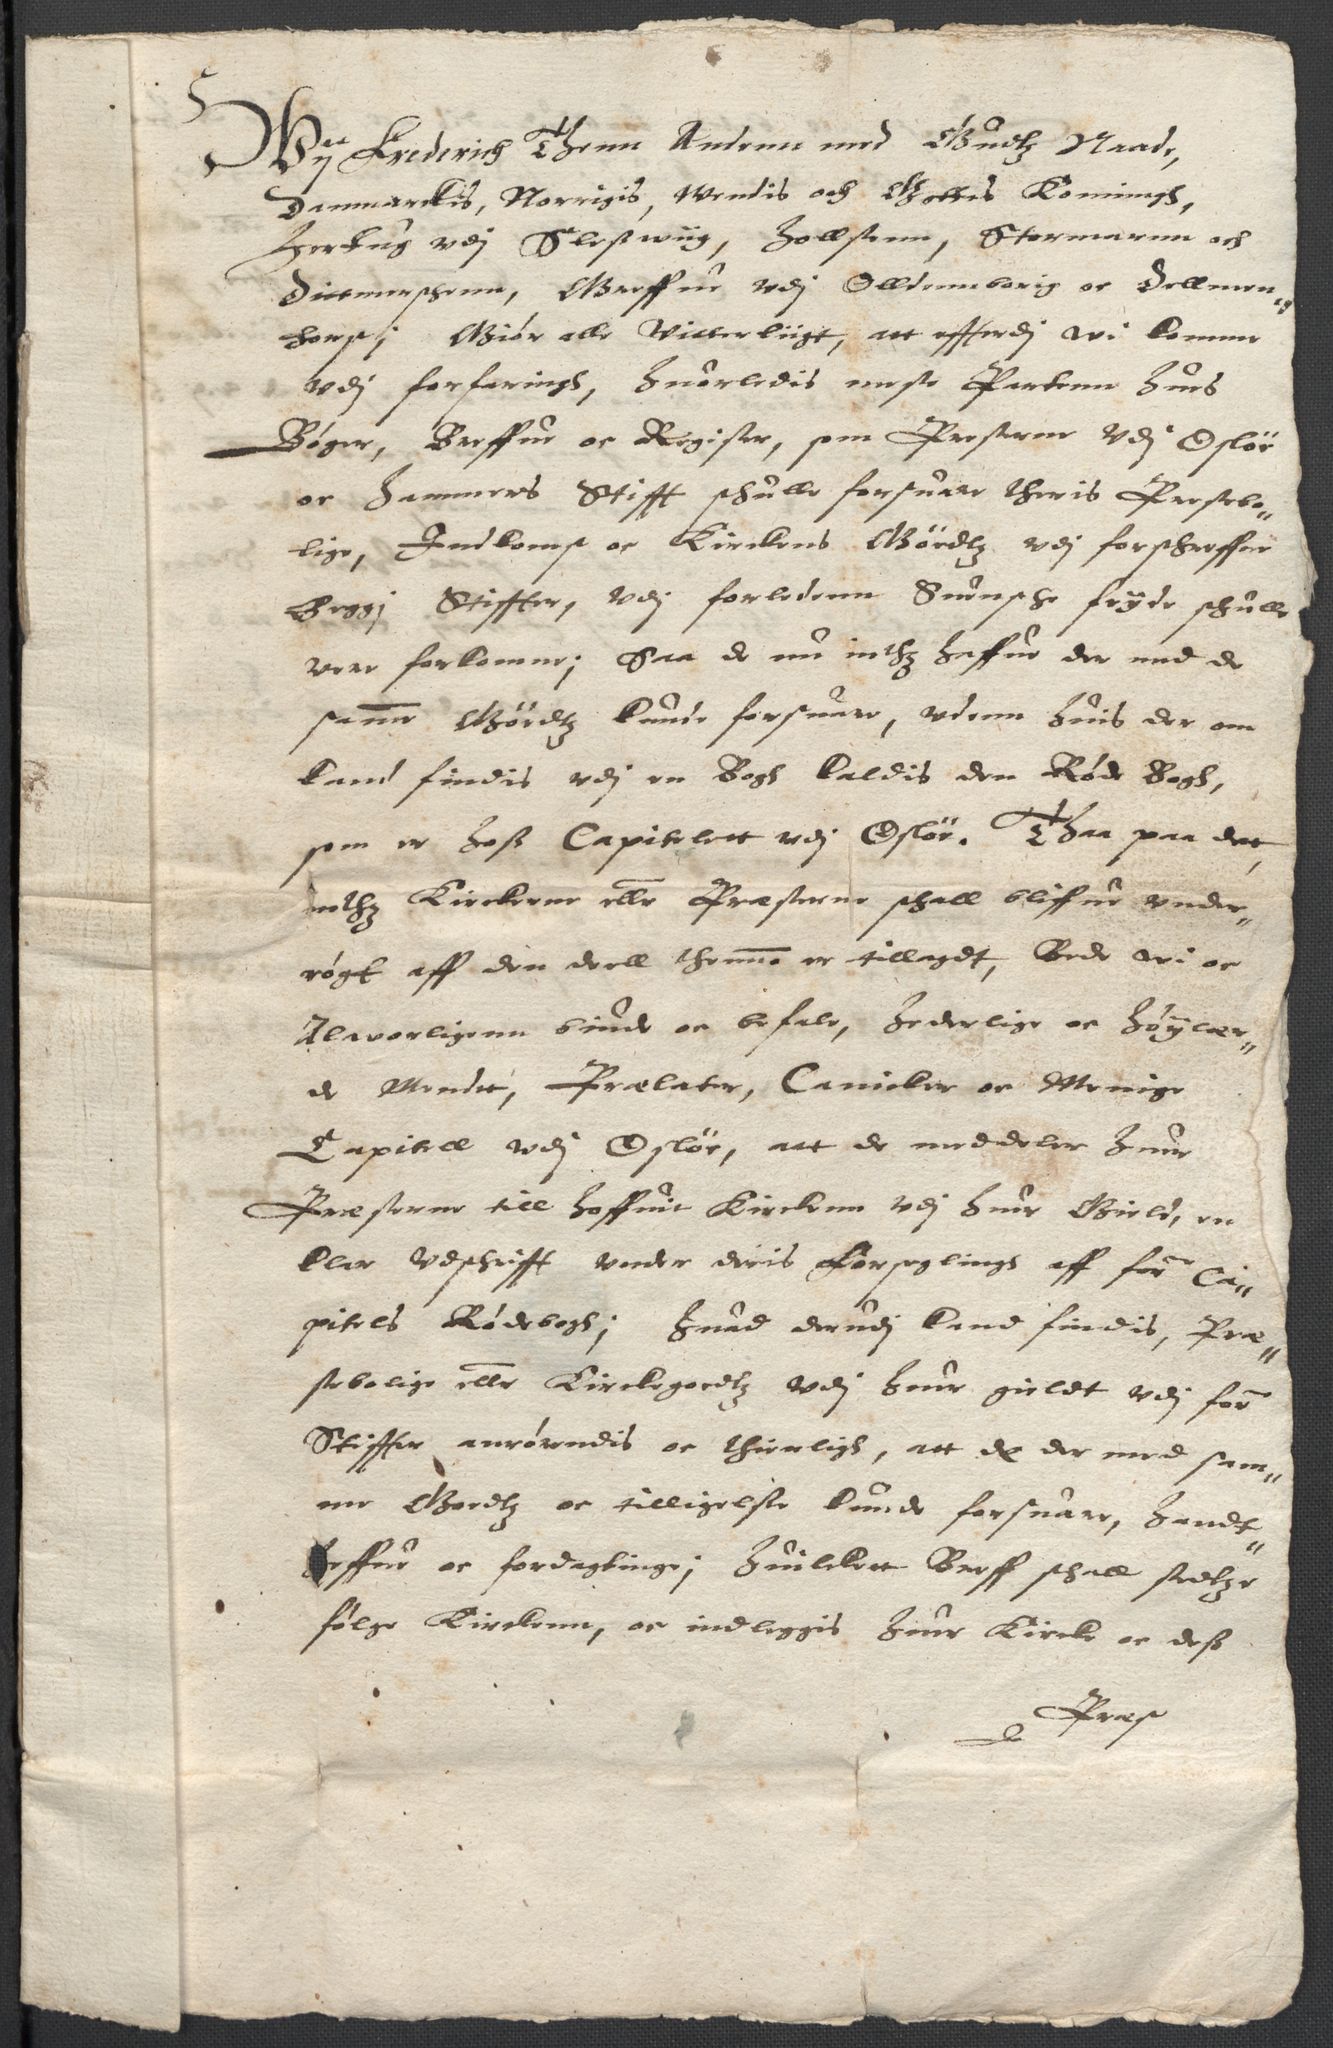 Wij Frederich Thenn Andenn med Gudtz Naade,
Danmarckis, Norrigis, Wendis och Gottis Konningh,
Hertug vdj Slesswiig, Hollstenn, Stormarnn och
Dittmerschenn, Greffue vdj Olldennborig oc Dellmen„
horst; Giör alle Vitterligt, att efftterdj wi komme
vdj forfaringh, huorledis meste Partenn huis
Bøger, Breffue oc Register, som Presterne Vdj Oslöe
oc Hammers Stifft schulle forsuare theris Prestebo„
lige, Indkomst oc Kirckens Gödtz vdj forschreffne
Beggj Stiffter, Vdj forledenn Suensche feÿde schulle
vere forkomne; Saa de nu inthz haffue der med de
samme Gödtz kunde forsuare, vdenn huis der om
kand findis vdj en Bogh kaldis den Røde Bogh,
som er hoss Capitelett vdj Oslöe. Thaa paa det,
inthz Kirckerne eller Præsterne schall bliffue vnder„
røgt aff den deell thennom er tillagdt, Bede wi oc
Alworligenn biude oc befale, Hederlige oc Høÿlær„
de Mendt, Prælater, Canicker oc Menige
Capitell vdj Oslöe, att de meddeler huer
Præsterne till hoffuit Kirckenn vdj huer Gield, en
klar Vdschrifft vnder deris Forseglingh aff for: Ca„
pitels Rødebogh; huad derudj kand findis, Præ„
stebolige eller Kirckegoedtz vdj huer gieldt vdj for:
Stiffter anrørendis oc thienligh, att de der med sam„
me Goedtz oc tilligelsse kunde forsuare, handt„
heffue oc fordagtinge; Huilckett Breff schall stedtze
følge Kirckenn, oc indleggis huer Kircke oc dess
Præst